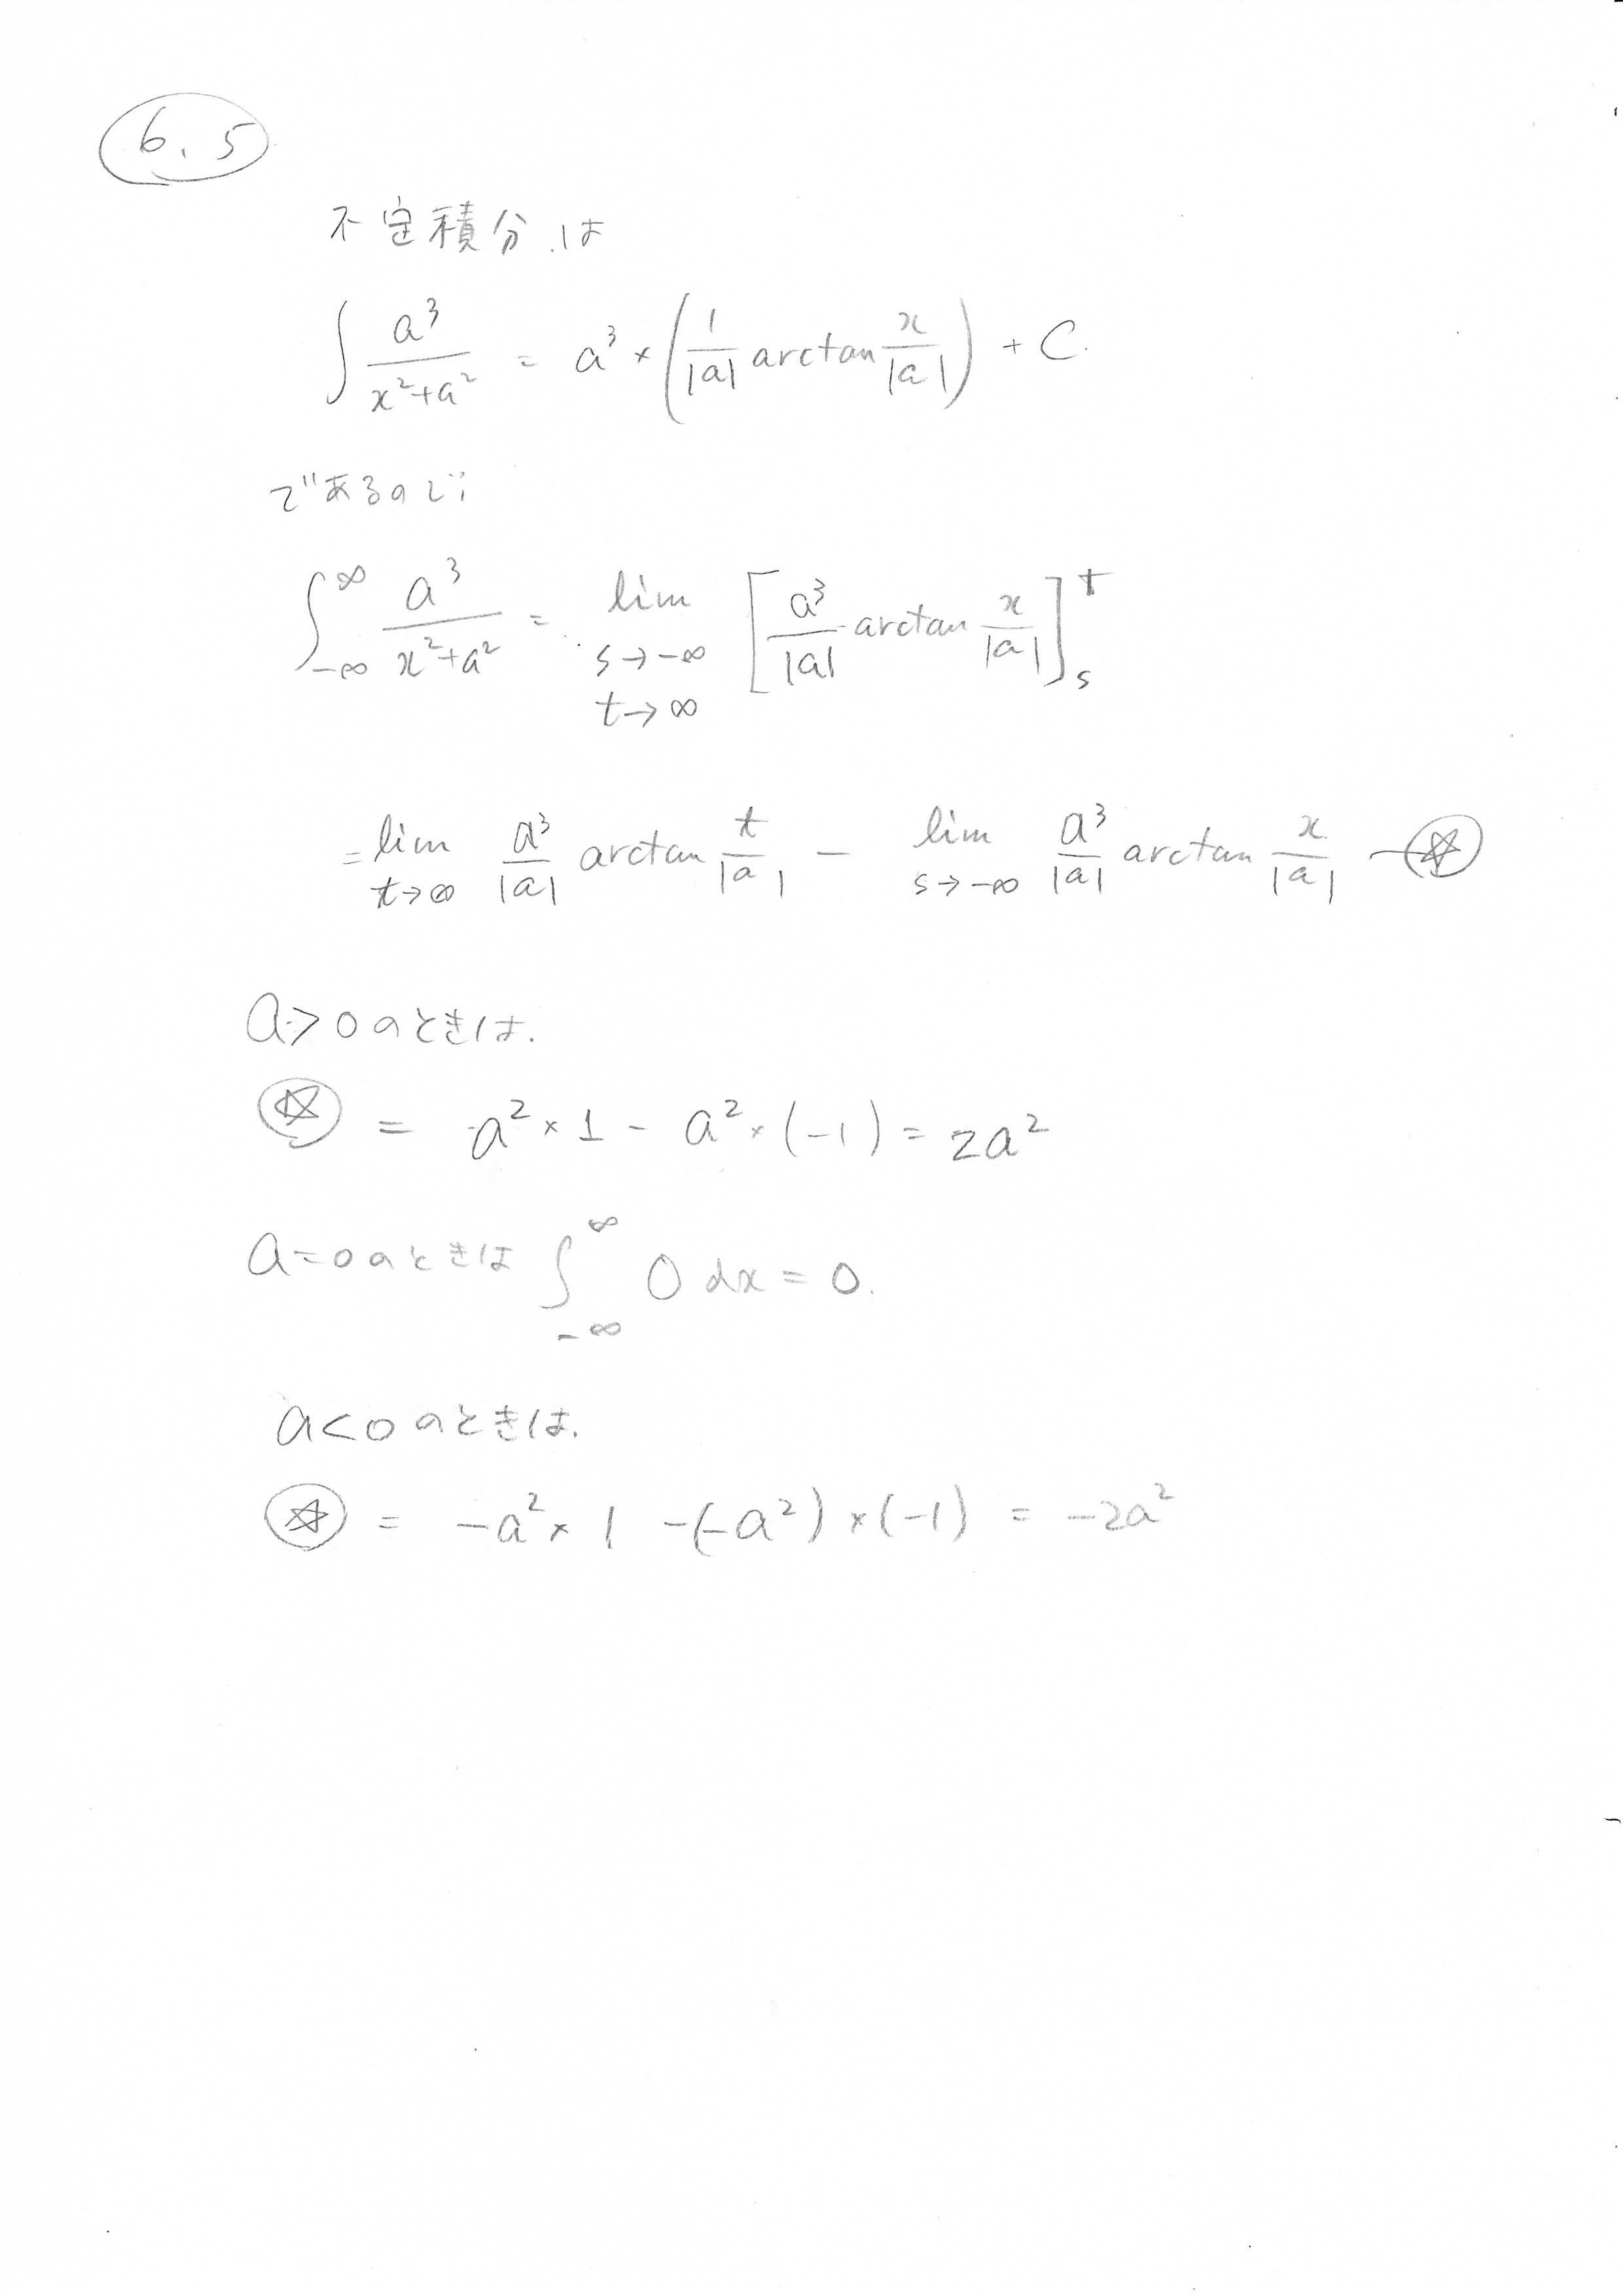 6.5
不定積分は
∫ a³/(x²+a²) = a³ × (1/|a| arctan x/|a|) + C.
であるので,
∫_{-∞}^{∞} a³/(x²+a²) = lim_{s→-∞, t→∞} [a³/|a| arctan x/|a|]_s^t
= lim_{t→∞} a³/|a| arctan t/|a| - lim_{s→-∞} a³/|a| arctan x/|a| —☆
a>0のときは.
☆ = a² × 1 - a² × (-1) = 2a²
a=0のときは ∫_{-∞}^{∞} 0 dx = 0.
a<0のときは.
☆ = -a² × 1 -(-a²) × (-1) = -2a²